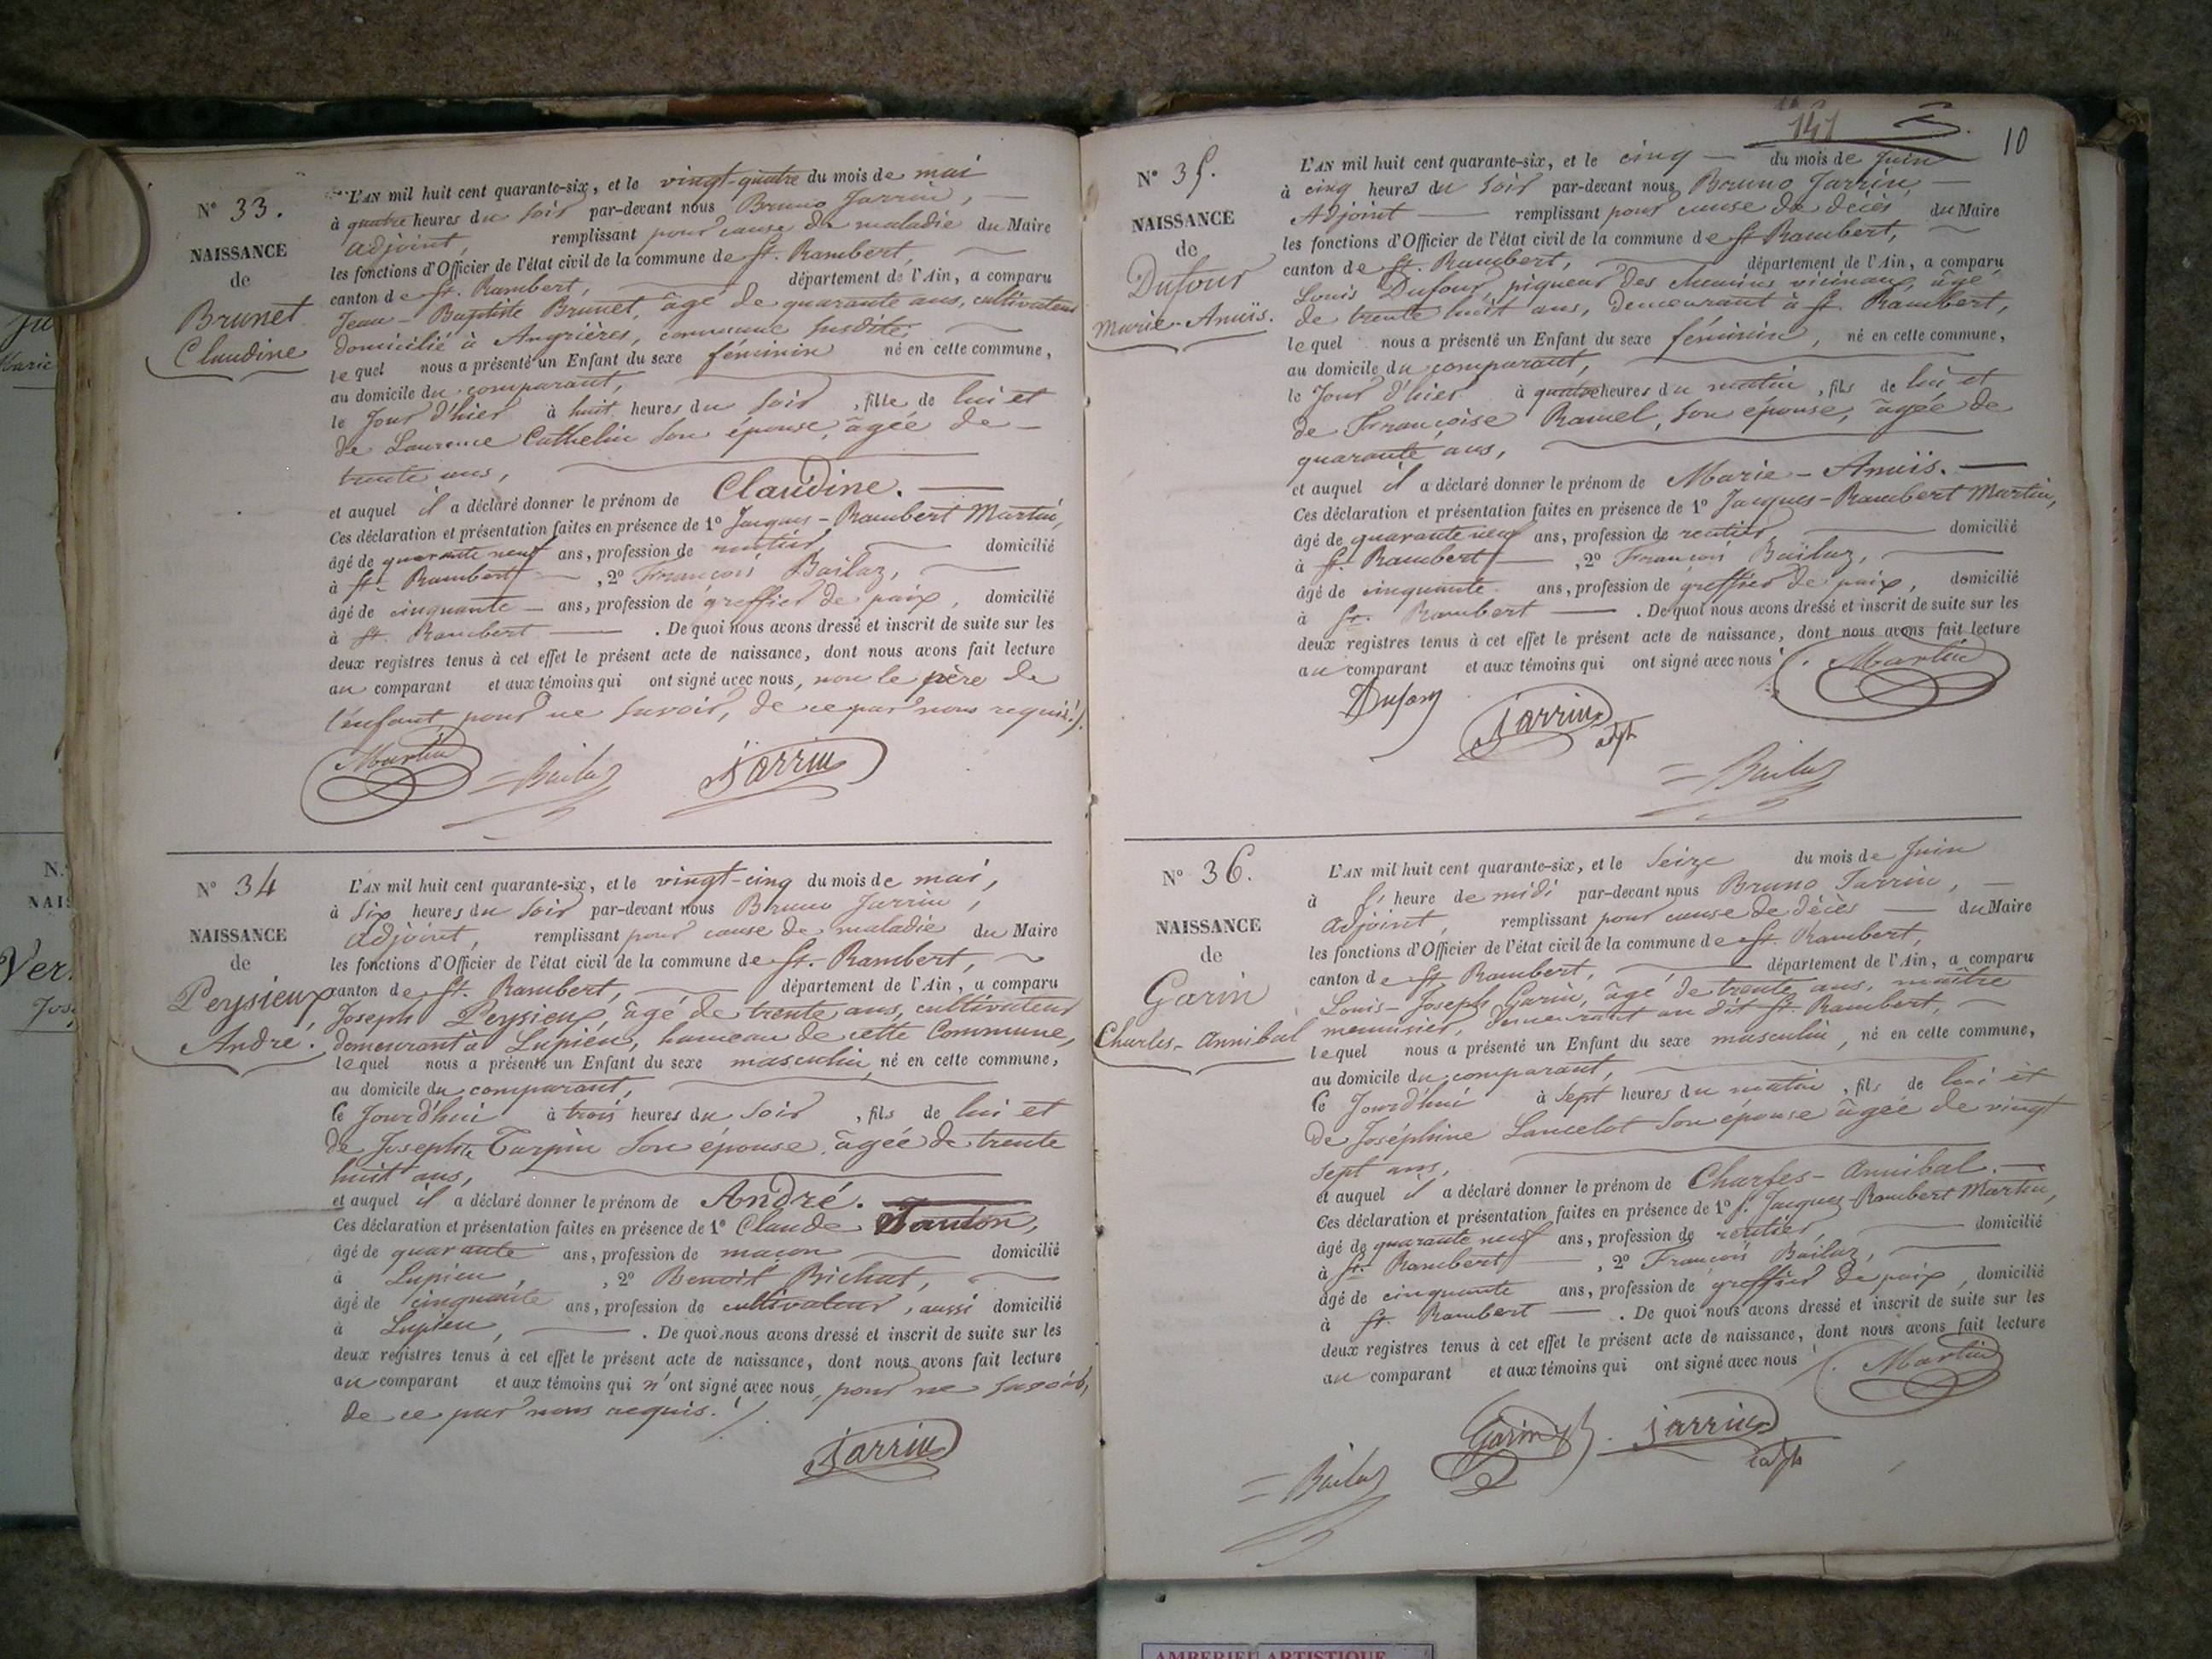 N° 33.
NAISSANCE
de
Brunet
Claudine
L'AN mil huit cent quarante-six, et le vingt-quatre du mois de mai
à quatre heures du soir par-devant nous Bruno Jarrin,
adjoint, remplissant pour cause de maladie du Maire
les fonctions d'Officier de l'état civil de la commune de St. Rambert,
canton de St. Rambert, département de l'Ain, a comparu
Jean-Baptiste Brunet, âgé de quarante ans, cultivateur
domicilié à Angrières, commune susdite,
lequel nous a présenté un Enfant du sexe féminin né en cette commune,
au domicile du comparant,
le Jour d'hier à huit heures du soir, fille de lui et
de Laurence Cathelin son épouse, âgée de
trente ans,
et auquel il a déclaré donner le prénom de Claudine.
Ces déclaration et présentation faites en présence de 1° Jacques-Rambert Martin,
âgé de quarante neuf ans, profession de rentier domicilié
à St. Rambert, 2° François Bailaz,
âgé de cinquante ans, profession de greffier de paix, domicilié
à St. Rambert. De quoi nous avons dressé et inscrit de suite sur les
deux registres tenus à cet effet le présent acte de naissance, dont nous avons fait lecture
au comparant et aux témoins qui ont signé avec nous, non le père de
l'enfant pour ne savoir, de ce par nous requis.
Martin Bailaz Jarrin
N° 34
NAISSANCE
de
Peysieux
André.
L'AN mil huit cent quarante-six, et le vingt-cinq du mois de mai,
à six heures du soir par-devant nous Bruno Jarrin,
adjoint, remplissant pour cause de maladie du Maire
les fonctions d'Officier de l'état civil de la commune de St. Rambert,
canton de St. Rambert, département de l'Ain, a comparu
Joseph Peysieux, âgé de trente ans, cultivateur
demeurant à Lupieu, hameau de cette Commune,
lequel nous a présenté un Enfant du sexe masculin, né en cette commune,
au domicile du comparant,
le Jourd'hui à trois heures du soir, fils de lui et
de Josephte Turpin son épouse, âgée de trente
huit ans,
et auquel il a déclaré donner le prénom de André.
Ces déclaration et présentation faites en présence de 1° Claude Tanton,
âgé de quarante ans, profession de maçon domicilié
à Lupieu, 2° Benoit Bichat,
âgé de cinquante ans, profession de cultivateur, aussi domicilié
à Lupieu, . De quoi nous avons dressé et inscrit de suite sur les
deux registres tenus à cet effet le présent acte de naissance, dont nous avons fait lecture
au comparant et aux témoins qui n'ont signé avec nous, pour ne savoir,
de ce par nous requis.
Jarrin
141
10
N° 35.
NAISSANCE
de
Dufour
Marie-Anaïs.
L'AN mil huit cent quarante-six, et le cinq du mois de Juin
à cinq heures du soir par-devant nous Bruno Jarrin,
Adjoint remplissant pour cause de décès du Maire
les fonctions d'Officier de l'état civil de la commune de St. Rambert,
canton de St. Rambert, département de l'Ain, a comparu
Louis Dufour, piqueur des chemins vicinaux, âgé
de trente huit ans, demeurant à St. Rambert,
lequel nous a présenté un Enfant du sexe féminin, né en cette commune,
au domicile du comparant,
le Jour d'hier à quatre heures du matin, fils de lui et
de Françoise Ramel, son épouse, âgée de
quarante ans,
et auquel il a déclaré donner le prénom de Marie-Anaïs.
Ces déclaration et présentation faites en présence de 1° Jacques-Rambert Martin,
âgé de quarante neuf ans, profession de rentier domicilié
à St. Rambert, 2° François Bailaz,
âgé de cinquante ans, profession de greffier de paix, domicilié
à St. Rambert. De quoi nous avons dressé et inscrit de suite sur les
deux registres tenus à cet effet le présent acte de naissance, dont nous avons fait lecture
au comparant et aux témoins qui ont signé avec nous. Martin
Dufour Jarrin adjt
Bailaz
N° 36.
NAISSANCE
de
Garin
Charles-Annibal
L'AN mil huit cent quarante-six, et le seize du mois de Juin
à l' heure de midi par-devant nous Bruno Jarrin,
adjoint, remplissant pour cause de décès du Maire
les fonctions d'Officier de l'état civil de la commune de St. Rambert,
canton de St. Rambert, département de l'Ain, a comparu
Louis-Joseph Garin, âgé de trente ans, maître
menuisier, demeurant au dit St. Rambert,
lequel nous a présenté un Enfant du sexe masculin, né en cette commune,
au domicile du comparant,
le Jourd'hui à sept heures du matin, fils de lui et
de Joséphine Lancelot son épouse âgée de vingt
sept ans,
et auquel il a déclaré donner le prénom de Charles-Annibal.
Ces déclaration et présentation faites en présence de 1° Jacques-Rambert Martin,
âgé de quarante neuf ans, profession de rentier, domicilié
à St. Rambert, 2° François Bailaz,
âgé de cinquante ans, profession de greffier de paix, domicilié
à St. Rambert. De quoi nous avons dressé et inscrit de suite sur les
deux registres tenus à cet effet le présent acte de naissance, dont nous avons fait lecture
au comparant et aux témoins qui ont signé avec nous. Martin
Garin Jarrin adjt
Bailaz
AMBERIEU ARTISTIQUE